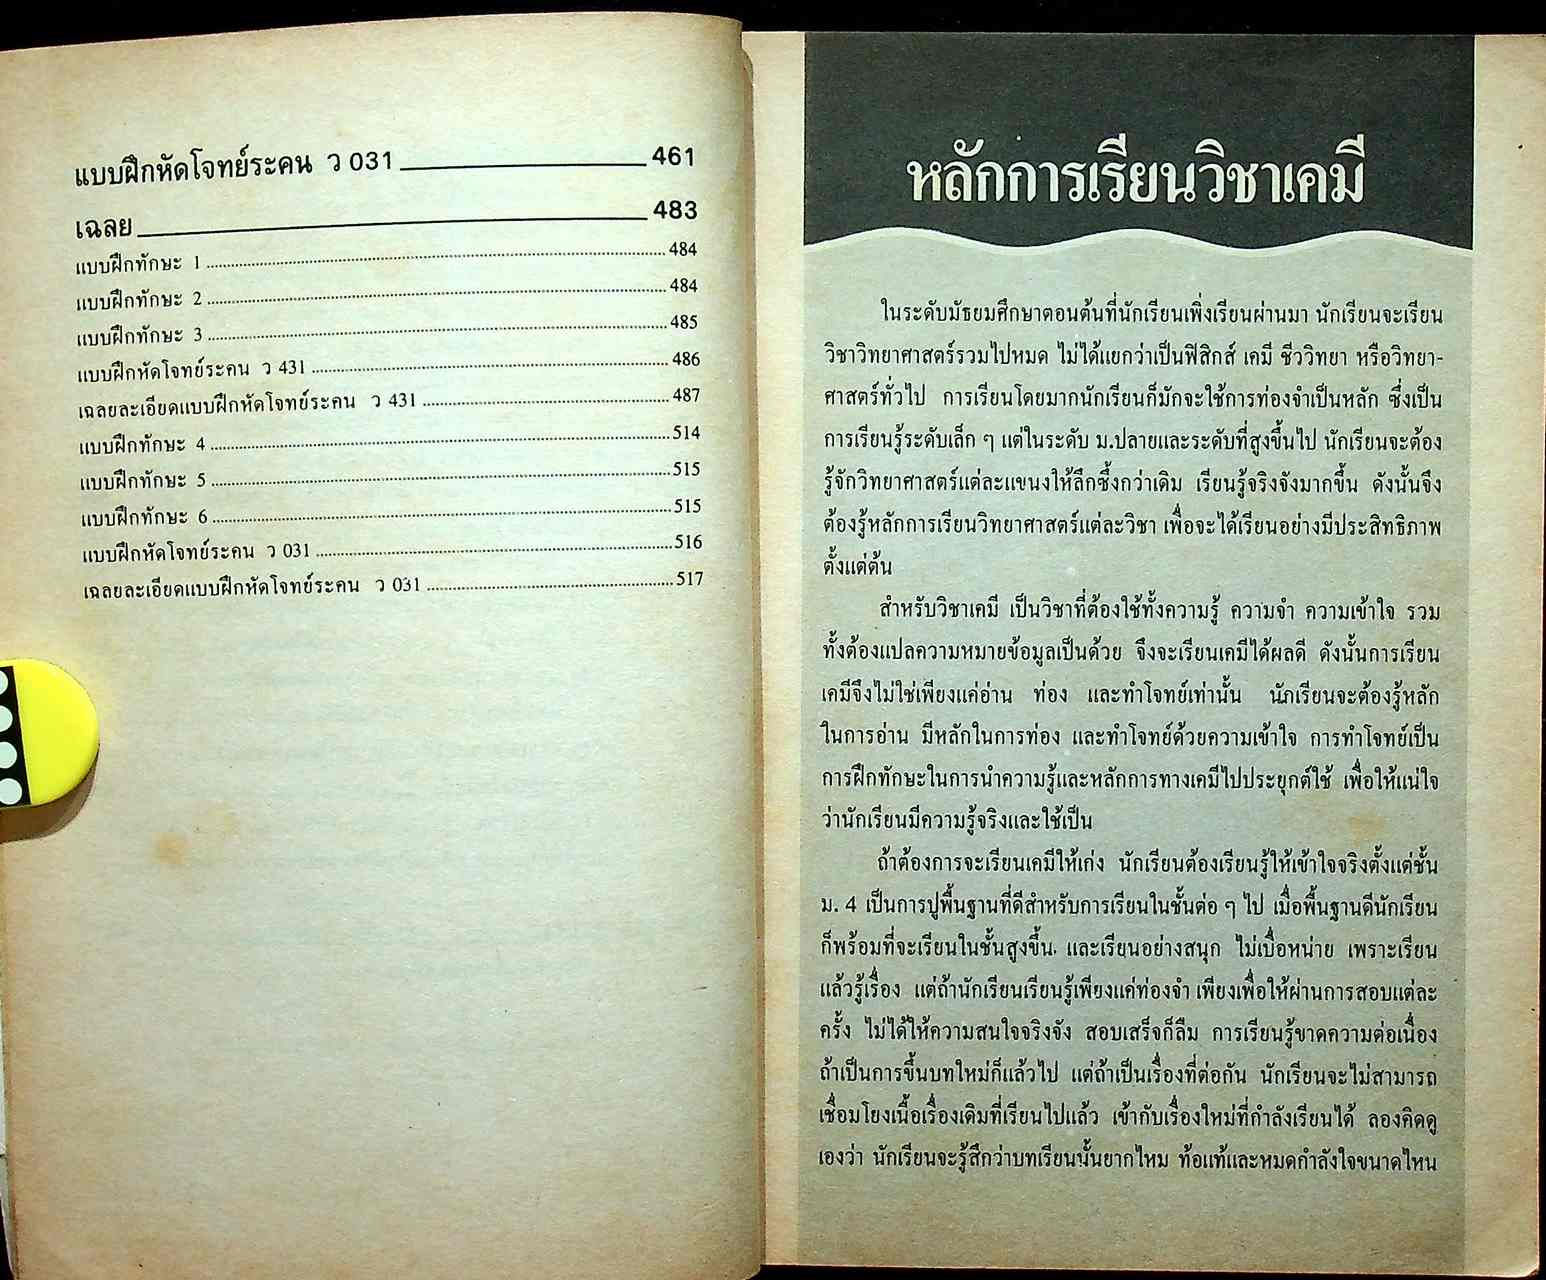 แบบฝึกหัดโจทย์ระคน ว 031 461
เฉลย 483
แบบฝึกทักษะ 1 484
แบบฝึกทักษะ 2 484
แบบฝึกทักษะ 3 485
แบบฝึกหัดโจทย์ระคน ว 431 486
เฉลยละเอียดแบบฝึกหัดโจทย์ระคน ว 431 487
แบบฝึกทักษะ 4 514
แบบฝึกทักษะ 5 515
แบบฝึกทักษะ 6 515
แบบฝึกหัดโจทย์ระคน ว 031 516
เฉลยละเอียดแบบฝึกหัดโจทย์ระคน ว 031 517
หลักการเรียนวิชาเคมี
ในระดับมัธยมศึกษาตอนต้นที่นักเรียนเพิ่งเรียนผ่านมา นักเรียนจะเรียน
วิชาวิทยาศาสตร์รวมไปหมด ไม่ได้แยกว่าเป็นฟิสิกส์ เคมี ชีววิทยา หรือวิทยา-
ศาสตร์ทั่วไป การเรียนโดยมากนักเรียนก็มักจะใช้การท่องจำเป็นหลัก ซึ่งเป็น
การเรียนรู้ระดับเล็ก ๆ แต่ในระดับ ม.ปลายและระดับที่สูงขึ้นไป นักเรียนจะต้อง
รู้จักวิทยาศาสตร์แต่ละแขนงให้ลึกซึ้งกว่าเดิม เรียนรู้จริงจังมากขึ้น ดังนั้นจึง
ต้องรู้หลักการเรียนวิทยาศาสตร์แต่ละวิชา เพื่อจะได้เรียนอย่างมีประสิทธิภาพ
ตั้งแต่ต้น
สำหรับวิชาเคมี เป็นวิชาที่ต้องใช้ทั้งความรู้ ความจำ ความเข้าใจ รวม
ทั้งต้องแปลความหมายข้อมูลเป็นด้วย จึงจะเรียนเคมีได้ผลดี ดังนั้นการเรียน
เคมีจึงไม่ใช่เพียงแค่อ่าน ท่อง และทำโจทย์เท่านั้น นักเรียนจะต้องรู้หลัก
ในการอ่าน มีหลักในการท่อง และทำโจทย์ด้วยความเข้าใจ การทำโจทย์เป็น
การฝึกทักษะในการนำความรู้และหลักการทางเคมีไปประยุกต์ใช้ เพื่อให้แน่ใจ
ว่านักเรียนมีความรู้จริงและใช้เป็น
ถ้าต้องการจะเรียนเคมีให้เก่ง นักเรียนต้องเรียนรู้ให้เข้าใจจริงตั้งแต่ชั้น
ม. 4 เป็นการปูพื้นฐานที่ดีสำหรับการเรียนในชั้นต่อ ๆ ไป เมื่อพื้นฐานดีนักเรียน
ก็พร้อมที่จะเรียนในชั้นสูงขึ้น และเรียนอย่างสนุก ไม่เบื่อหน่าย เพราะเรียน
แล้วรู้เรื่อง แต่ถ้านักเรียนเรียนรู้เพียงแค่ท่องจำ เพียงเพื่อให้ผ่านการสอบแต่ละ
ครั้ง ไม่ได้ให้ความสนใจจริงจัง สอบเสร็จก็ลืม การเรียนรู้ขาดความต่อเนื่อง
ถ้าเป็นการขึ้นบทใหม่ก็แล้วไป แต่ถ้าเป็นเรื่องที่ต่อกัน นักเรียนจะไม่สามารถ
เชื่อมโยงเนื้อเรื่องเดิมที่เรียนไปแล้ว เข้ากับเรื่องใหม่ที่กำลังเรียนได้ ลองคิดดู
เองว่า นักเรียนจะรู้สึกว่าบทเรียนนั้นยากไหม ท้อแท้และหมดกำลังใจขนาดไหน